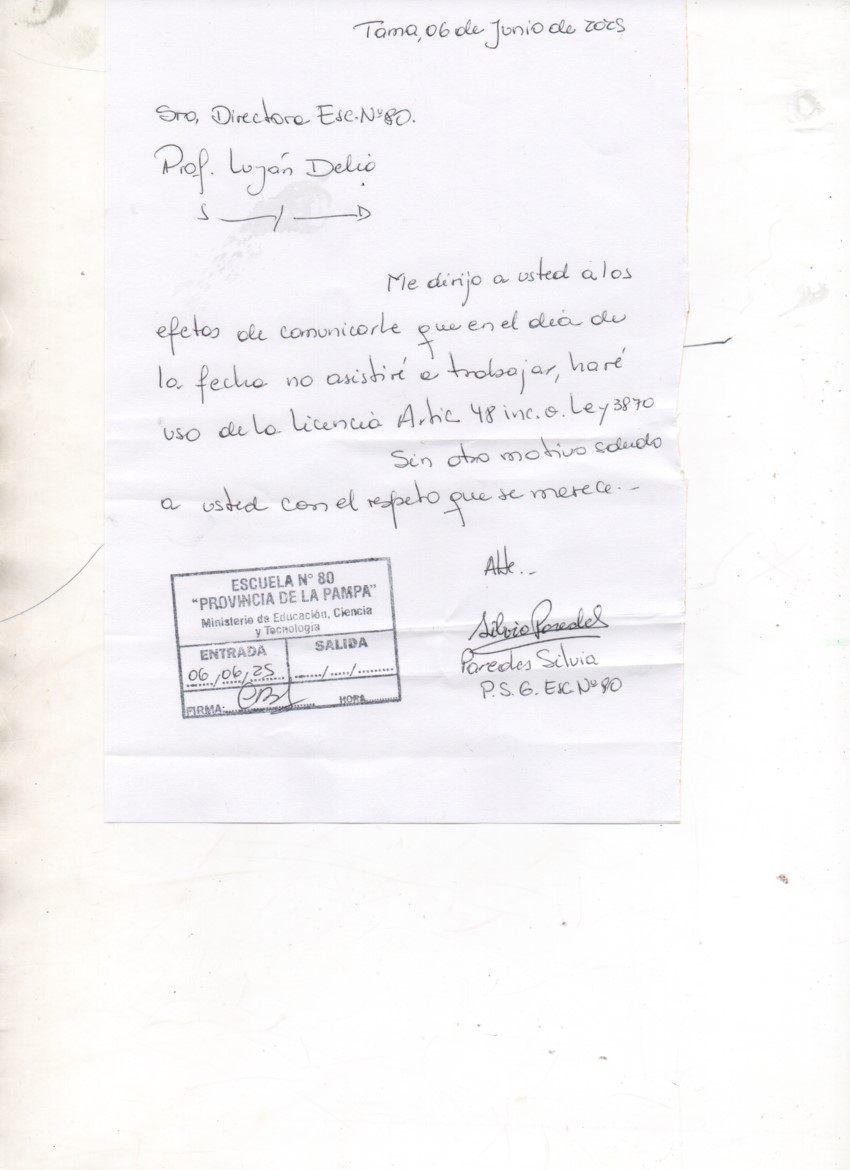 Tama, 06 de Junio de 2025
Sra, Directora Esc. Nº 80.
Prof. Luján Delia
S / D
Me dirijo a usted a los
efetos de comunicarle que en el día de
la fecha no asistiré a trabajar, haré
uso de la licencia Artic 48 inc. a. Ley 3870
Sin otro motivo saludo
a usted con el respeto que se merece.-
Atte.-
Silvia Paredes
Paredes Silvia
P.S.G. Esc. Nº 80
ESCUELA N° 80
"PROVINCIA DE LA PAMPA"
Ministerio de Educación, Ciencia
y Tecnología
ENTRADA SALIDA
06/06/25 ....../...../.........
FIRMA: HORA